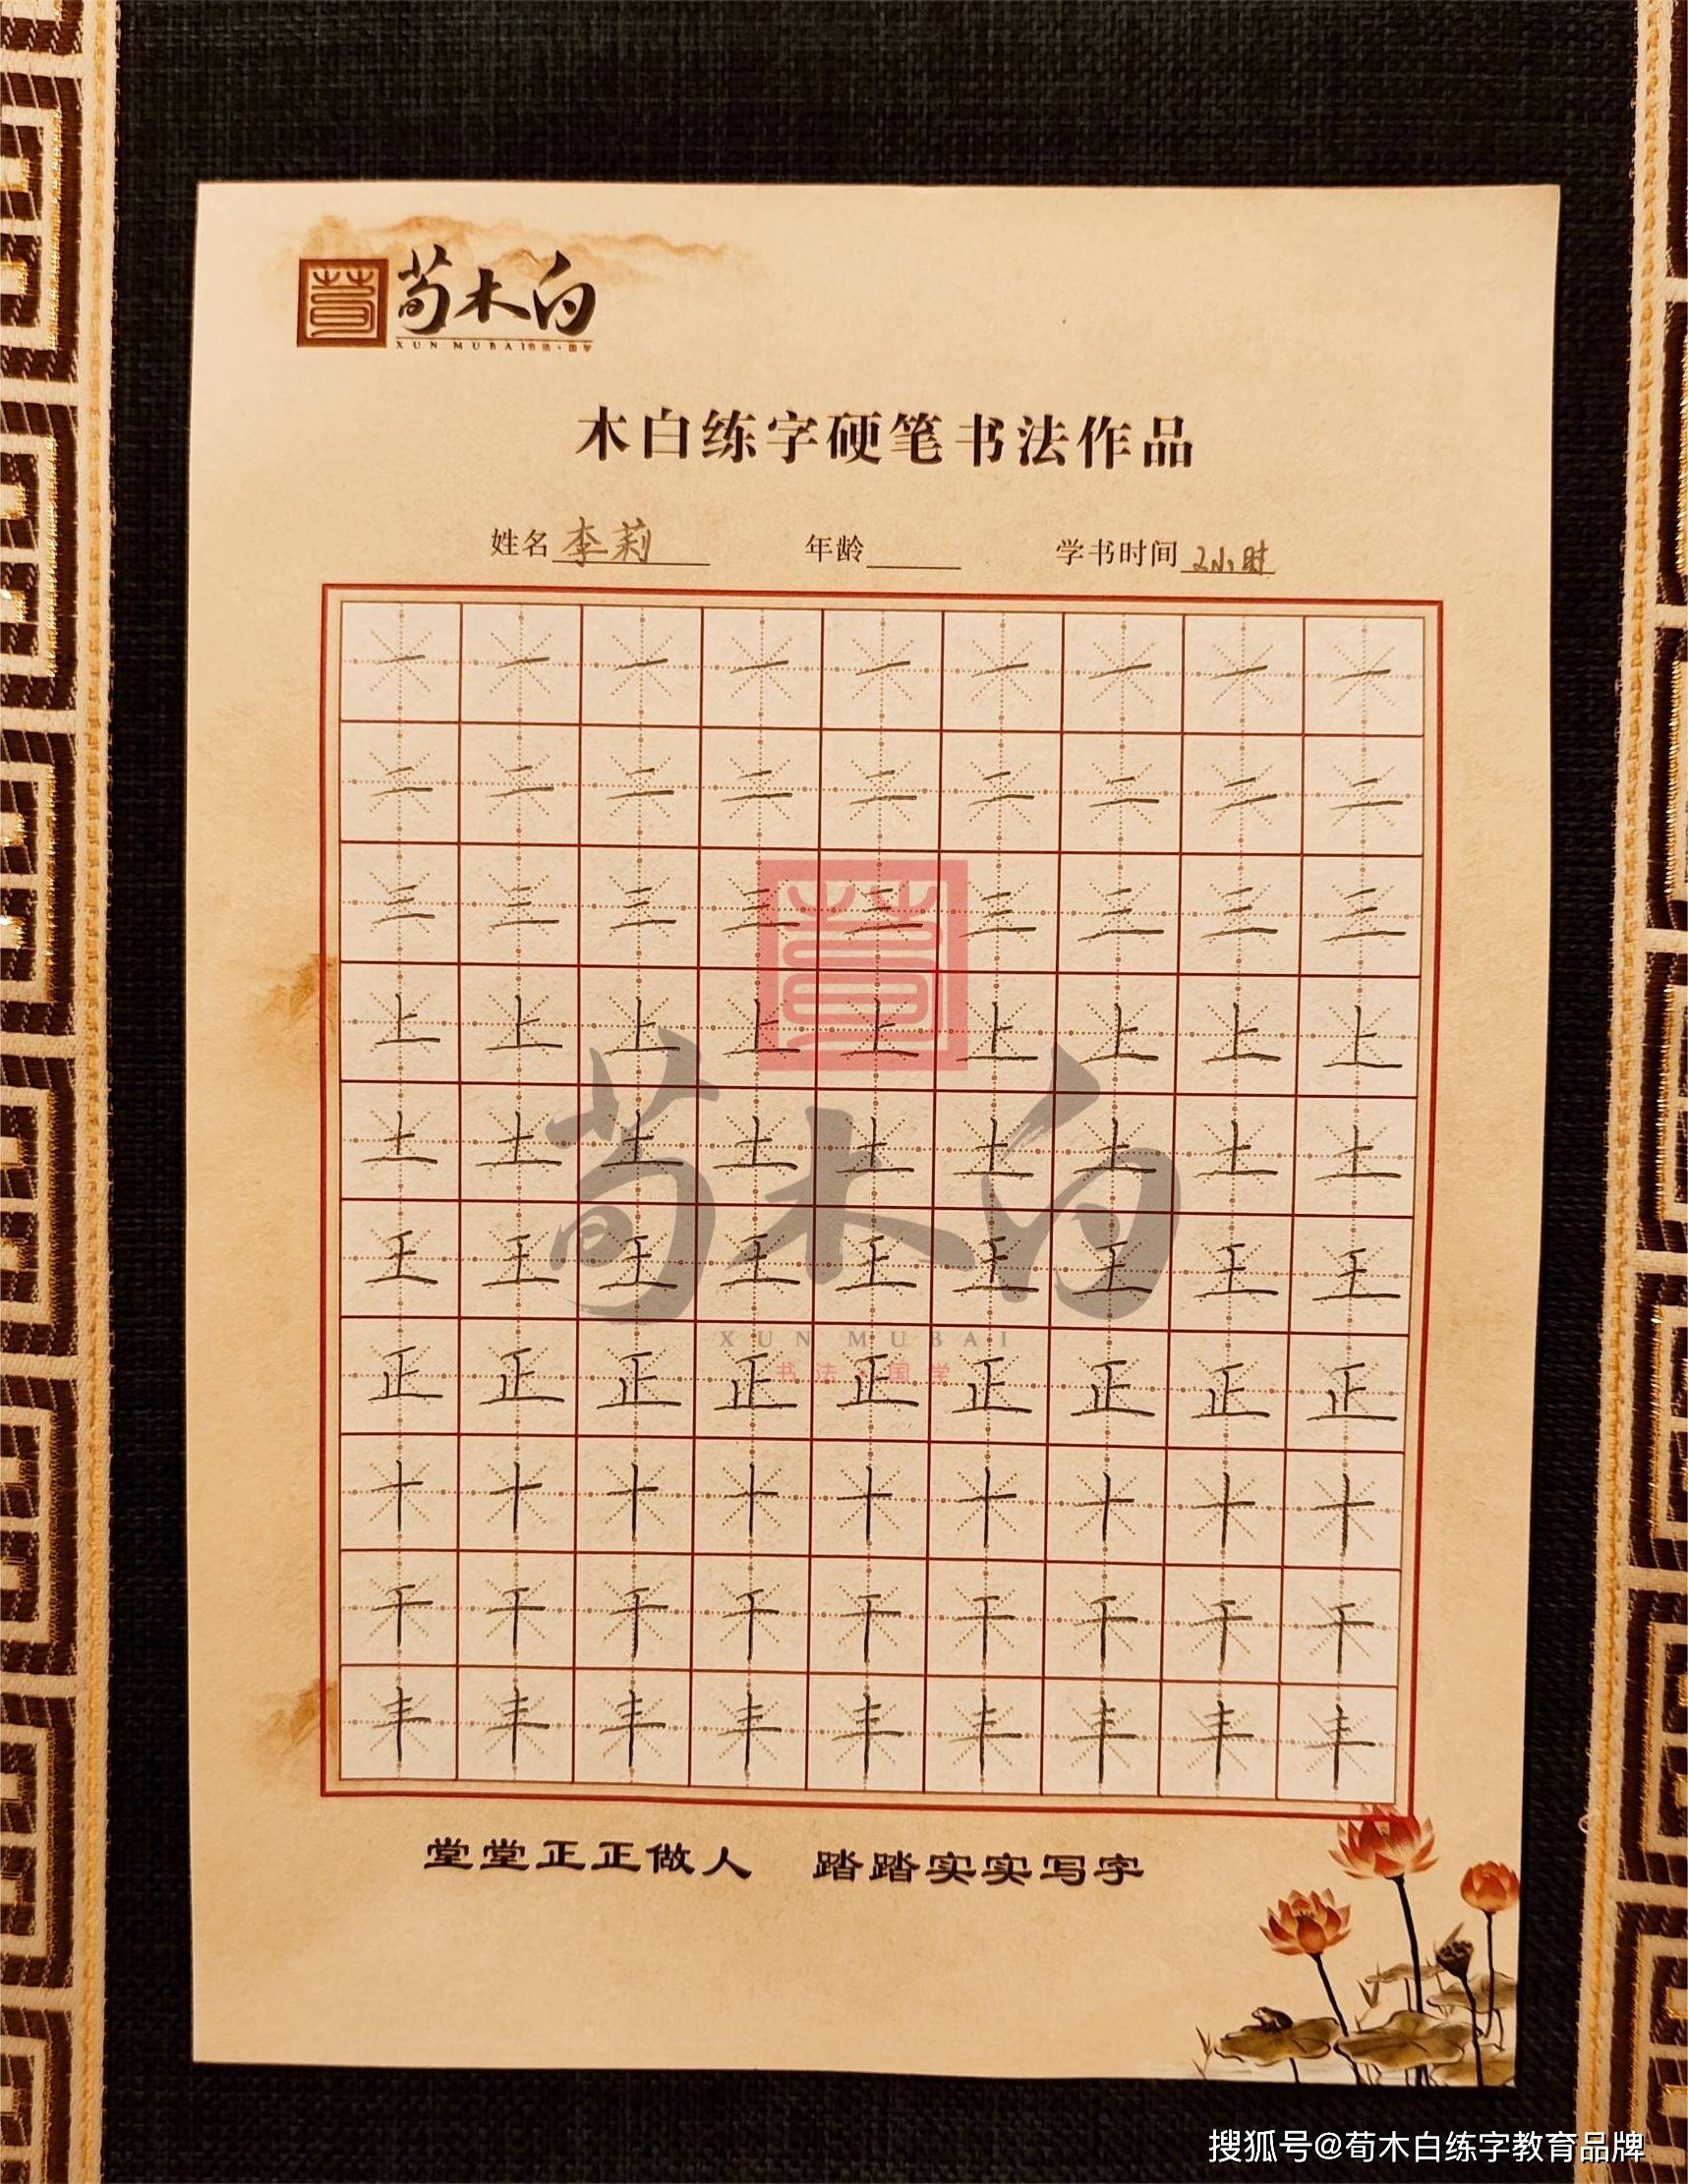 荀木白
XUN MUBAI书法·国学
木白练字硬笔书法作品
姓名 李莉 年龄 学书时间 2小时
一 一 一 一 一 一 一 一 一
二 二 二 二 二 二 二 二 二
三 三 三 三 三 三 三 三 三
上 上 上 上 上 上 上 上 上
土 土 土 土 土 土 土 土 土
王 王 王 王 王 王 王 王 王
正 正 正 正 正 正 正 正 正
十 十 十 十 十 十 十 十 十
干 干 干 干 干 干 干 干 干
丰 丰 丰 丰 丰 丰 丰 丰 丰
荀木白
XUN MUBAI
书法 国学
堂堂正正做人 踏踏实实写字
搜狐号@荀木白练字教育品牌